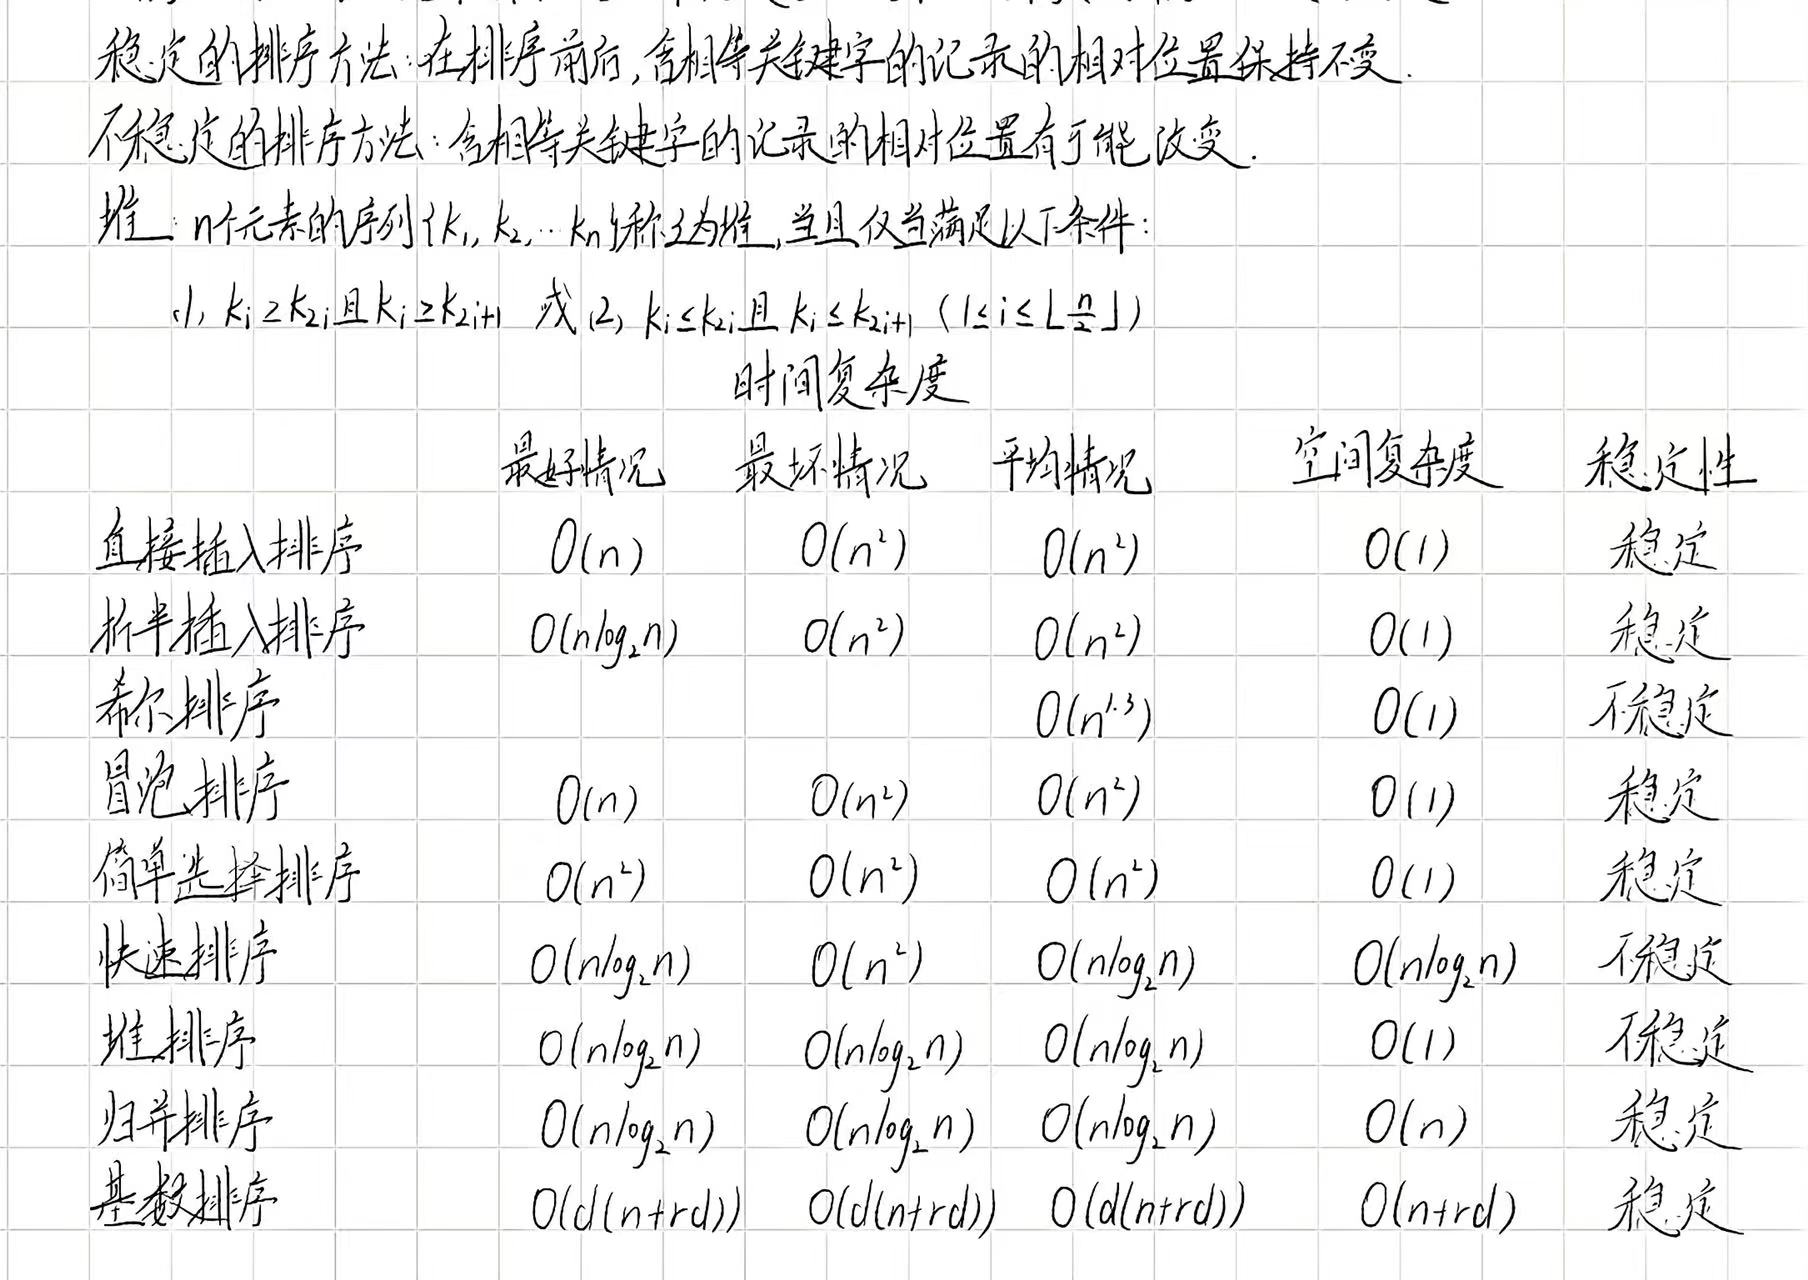 稳定的排序方法:在排序前后,含相等关键字的记录的相对位置保持不变.
不稳定的排序方法:含相等关键字的记录的相对位置有可能改变.
堆:n个元素的序列{k₁,k₂,…kₙ}称之为堆,当且仅当满足以下条件:
(1) kᵢ≥k₂ᵢ且kᵢ≥k₂ᵢ₊₁ 或(2) kᵢ≤k₂ᵢ且kᵢ≤k₂ᵢ₊₁ (1≤i≤⌊n/2⌋)
时间复杂度
最好情况 最坏情况 平均情况 空间复杂度 稳定性
直接插入排序 O(n) O(n²) O(n²) O(1) 稳定
折半插入排序 O(nlog₂n) O(n²) O(n²) O(1) 稳定
希尔排序 O(n¹·³) O(1) 不稳定
冒泡排序 O(n) O(n²) O(n²) O(1) 稳定
简单选择排序 O(n²) O(n²) O(n²) O(1) 稳定
快速排序 O(nlog₂n) O(n²) O(nlog₂n) O(nlog₂n) 不稳定
堆排序 O(nlog₂n) O(nlog₂n) O(nlog₂n) O(1) 不稳定
归并排序 O(nlog₂n) O(nlog₂n) O(nlog₂n) O(n) 稳定
基数排序 O(d(n+rd)) O(d(n+rd)) O(d(n+rd)) O(n+rd) 稳定